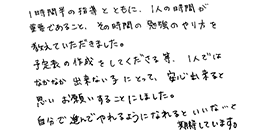 1時間半の指導とともに、1人の時間が
重要であること、その時間の勉強のやり方を
教えていただきました。
予定表の作成をしてくださる等、1人では
なかなか出来ない子にとって、安心出来ると
思いお願いすることにしました。
自分で進んでやれるようになれるといいな…と
期待しています。